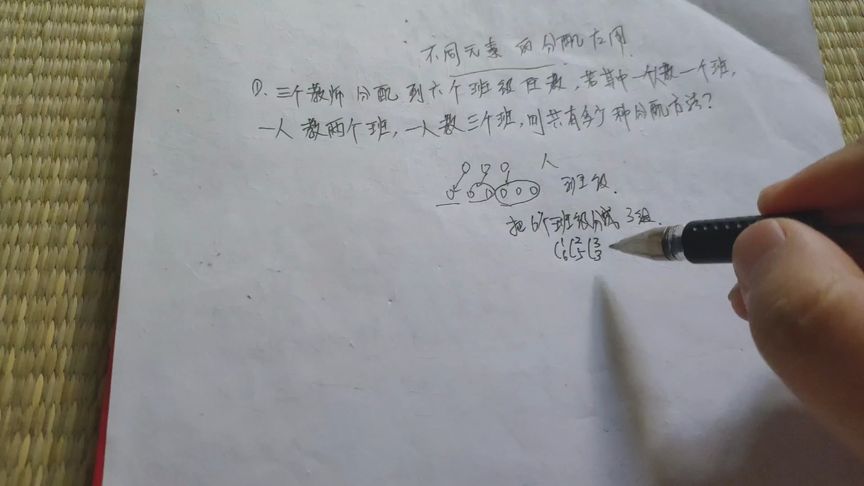 不同元素的分配应用
①. 三个教师分配到六个班级任教,若其中一人教一个班,
一人教两个班,一人教三个班,则共有多少种分配方法?
人
班级.
把6个班级分成3组.
C₆¹C₅²C₃³